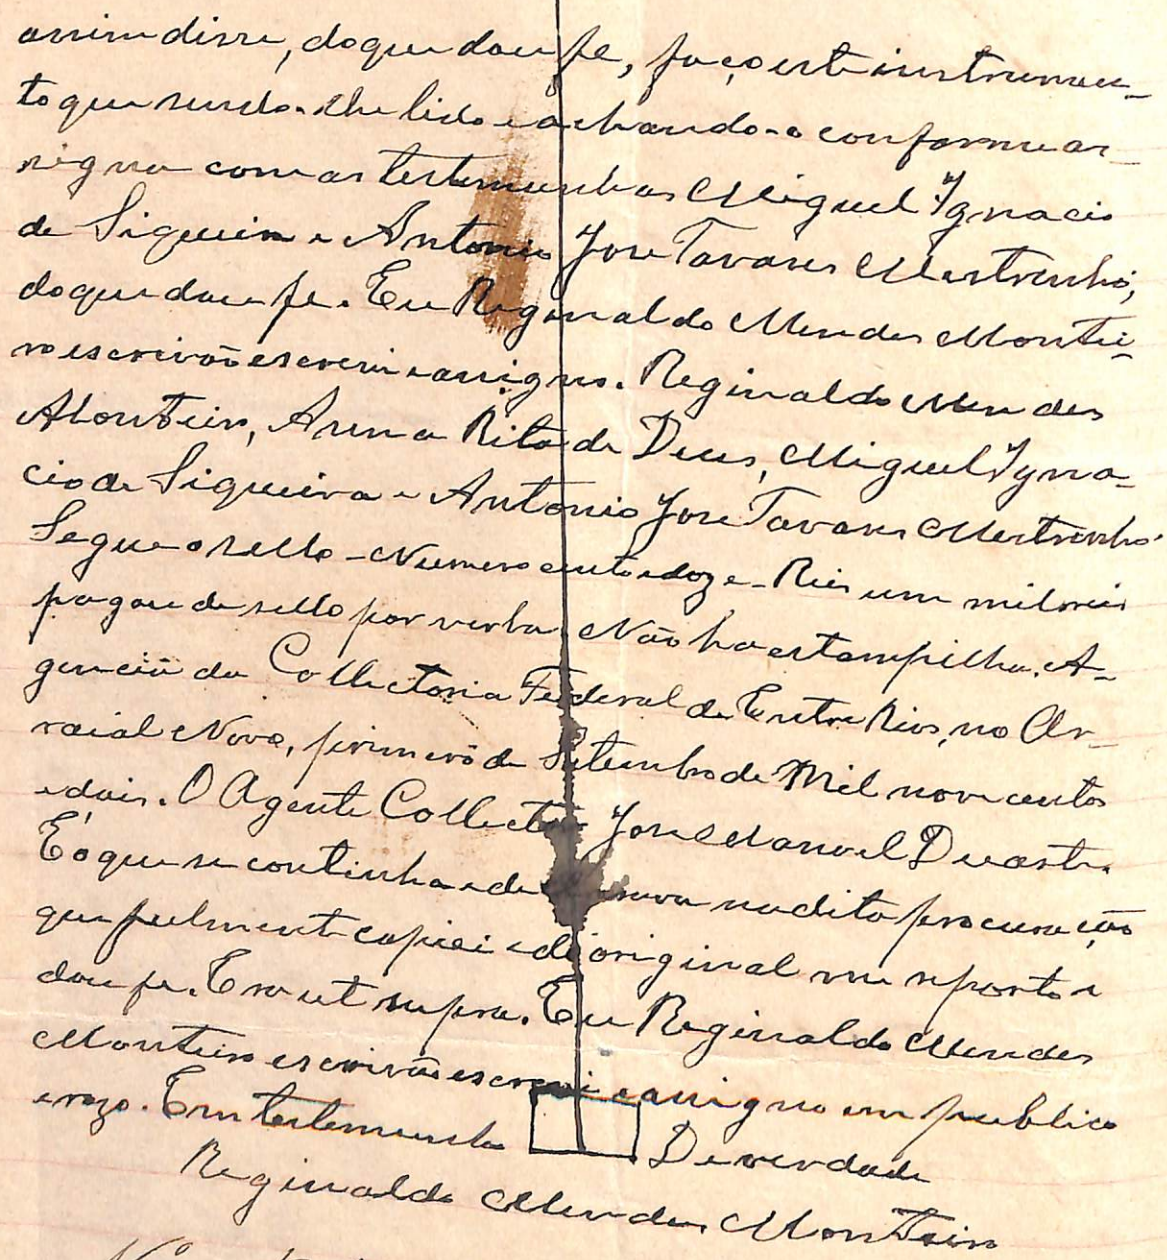 assim disse, do que dou fe, faço este instrumen-
to que sendo-lhe lido e achando-o conforme as-
signa com as testemunhas Miguel Ignacio
de Siqueira e Antonio Jose Tavares Mestrinho,
do que dou fe. Eu Reginaldo Mendes Montei-
ro escrivão escrevi e assigno. Reginaldo Mendes
Monteiro, Anna Rita de Deus, Miguel Igna-
cio de Siqueira e Antonio Jose Tavares Mestrinho
Segue o sello - Numero cento e doze - Reis um mil reis
pagou de sello por verba. Não ha estampilha. A-
gencia da Collectoria Federal de Entre Rios, no Ar-
raial Novo, primeiro de Setembro de Mil nove centos
e dois. O Agente Collector Jose Manoel Duarte.
E' o que se continha e de na dita procuração
que fielmente copiei e do original me reporto e
dou fe. Era ut supra. Eu Reginaldo Mendes
Monteiro escrivão escrevi e assigno em publico
e razo. Em testemunho De verdade
Reginaldo Mendes Monteiro